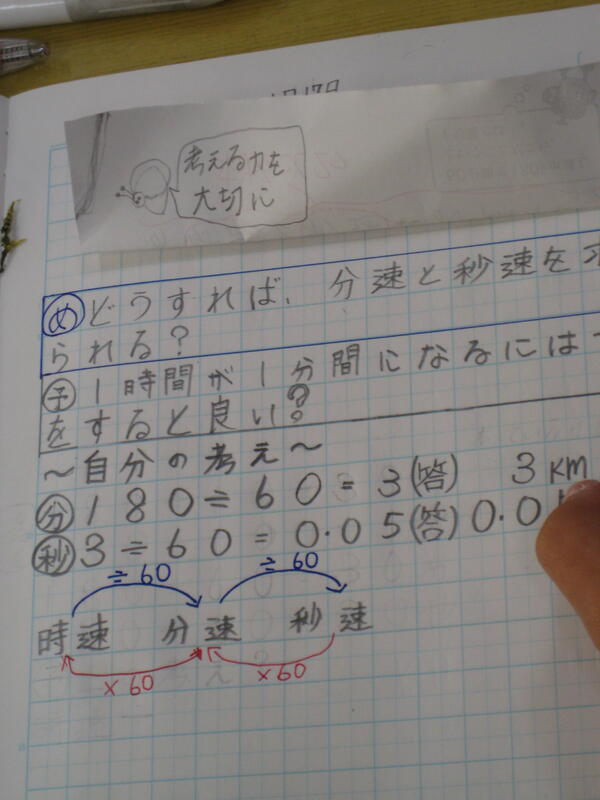 月17日
考える力を
大切に
め どうすれば、分速と秒速を求
られる?
予 1時間が1分間になるには
をすると良い?
~自分の考え~
分 180÷60=3(答) 3km
秒 3÷60=0.05(答)0.0
÷60 ÷60
時速 分速 秒速
×60 ×60